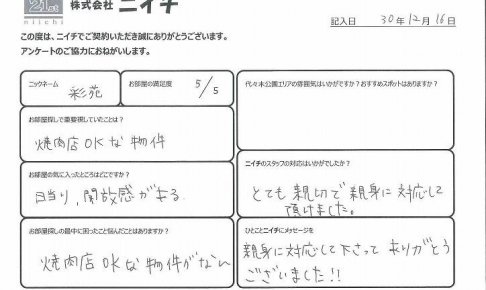 21st
niichi
株式会社 ニイチ
記入日 30年12月16日
この度は、ニイチでご契約いただき誠にありがとうございます。
アンケートのご協力におねがいします。
ニックネーム
彩苑
お部屋の満足度
5/5
お部屋探しで重要視していたことは?
焼肉店OKな物件
お部屋の気に入ったところはどこですか?
日当り、開放感がある
お部屋探しの最中に困ったこと悩んだことはありますか?
焼肉店OKな物件がない
代々木公園エリアの雰囲気はいかがですか?おすすめスポットはありますか?
ニイチのスタッフの対応はいかがでしたか?
とても親切で親身に対応して
頂けました。
ひとことニイチにメッセージを
親身に対応して下さって ありがとう
ございました!!